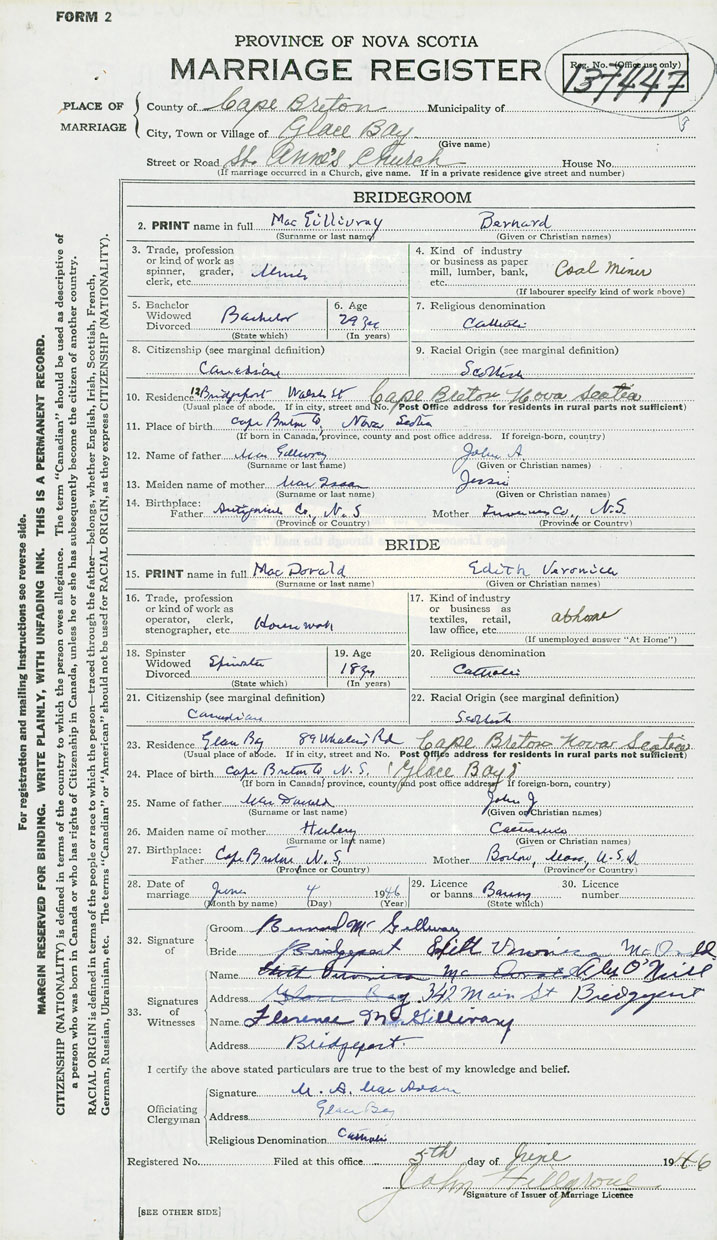 FORM 2
PROVINCE OF NOVA SCOTIA
MARRIAGE REGISTER
Reg. No. (Office use only)
137447
PLACE OF MARRIAGE
County of Cape Breton Municipality of
City, Town or Village of Glace Bay
(Give name)
Street or Road St. Anne's Church House No.
(If marriage occurred in a Church, give name. If in a private residence give street and number)
BRIDEGROOM
2. PRINT name in full MacGillivray Bernard
(Surname or last name) (Given or Christian names)
3. Trade, profession or kind of work as spinner, grader, clerk, etc.
4. Kind of industry or business as paper mill, lumber, bank, etc. Coal Miner
(If labourer specify kind of work above)
5. Bachelor Widowed Divorced Bachelor
(State which)
6. Age 29 yrs
(In years)
7. Religious denomination
Catholic
8. Citizenship (see marginal definition)
Canadian
9. Racial Origin (see marginal definition)
Scottish
10. Residence Bridgeport Walsh St Cape Breton Nova Scotia
(Usual place of abode. If in city, street and No. Post Office address for residents in rural parts not sufficient)
11. Place of birth Cape Breton Co, Nova Scotia
(If born in Canada, province, county and post office address. If foreign-born, country)
12. Name of father MacGillivray John A.
(Surname or last name) (Given or Christian names)
13. Maiden name of mother MacIsaac Jessie
(Surname or last name) (Given or Christian names)
14. Birthplace: Father Antigonish Co., N.S. Mother Inverness Co., N.S.
(Province or Country) (Province or Country)
BRIDE
15. PRINT name in full MacDonald Edith Veronica
(Surname or last name) (Given or Christian names)
16. Trade, profession or kind of work as operator, clerk, stenographer, etc. Housework
17. Kind of industry or business as textiles, retail, law office, etc. at home
(If unemployed answer "At Home")
18. Spinster Widowed Divorced Spinster
(State which)
19. Age 18 yrs
(In years)
20. Religious denomination
Catholic
21. Citizenship (see marginal definition)
Canadian
22. Racial Origin (see marginal definition)
Scottish
23. Residence Glace Bay 89 Rd Cape Breton Nova Scotia
(Usual place of abode. If in city, street and No. Post Office address for residents in rural parts not sufficient)
24. Place of birth Cape Breton Co, N.S. (Glace Bay)
(If born in Canada, province, county and post office address. If foreign-born, country)
25. Name of father MacDonald John J
(Surname or last name) (Given or Christian names)
26. Maiden name of mother
(Surname or last name) (Given or Christian names)
27. Birthplace: Father Cape Breton N.S. Mother Boston, Mass, U.S.A.
(Province or Country) (Province or Country)
28. Date of marriage June 4 1946
(Month by name) (Day) (Year)
29. Licence or banns Banns
(State which)
30. Licence number
32. Signature of
Groom Bernard McGillivary
Bride Bridgeport Edith Veronica McDonald
33. Signatures of Witnesses
Name Edith Veronica McDonald Alex O'Neill
Address Glace Bay 342 Main St Bridgeport
Name Florence McGillivary
Address Bridgeport.
I certify the above stated particulars are true to the best of my knowledge and belief.
Officiating Clergyman
Signature M. A. MacAdam
Address Glace Bay
Religious Denomination Catholic
Registered No. Filed at this office 5th day of June 1946
John Hillgrove
Signature of Issuer of Marriage Licence
[SEE OTHER SIDE]
For registration and mailing instructions see reverse side.
MARGIN RESERVED FOR BINDING. WRITE PLAINLY, WITH UNFADING INK. THIS IS A PERMANENT RECORD.
CITIZENSHIP (NATIONALITY) is defined in terms of the country to which the person owes allegiance. The term "Canadian" should be used as descriptive of
a person who was born in Canada or who has rights of Citizenship in Canada, unless he or she has subsequently become the citizen of another country.
RACIAL ORIGIN is defined in terms of the people or race to which the person—traced through the father—belongs, whether English, Irish, Scottish, French,
German, Russian, Ukrainian, etc. The terms "Canadian" or "American" should not be used for RACIAL ORIGIN, as they express CITIZENSHIP (NATIONALITY).